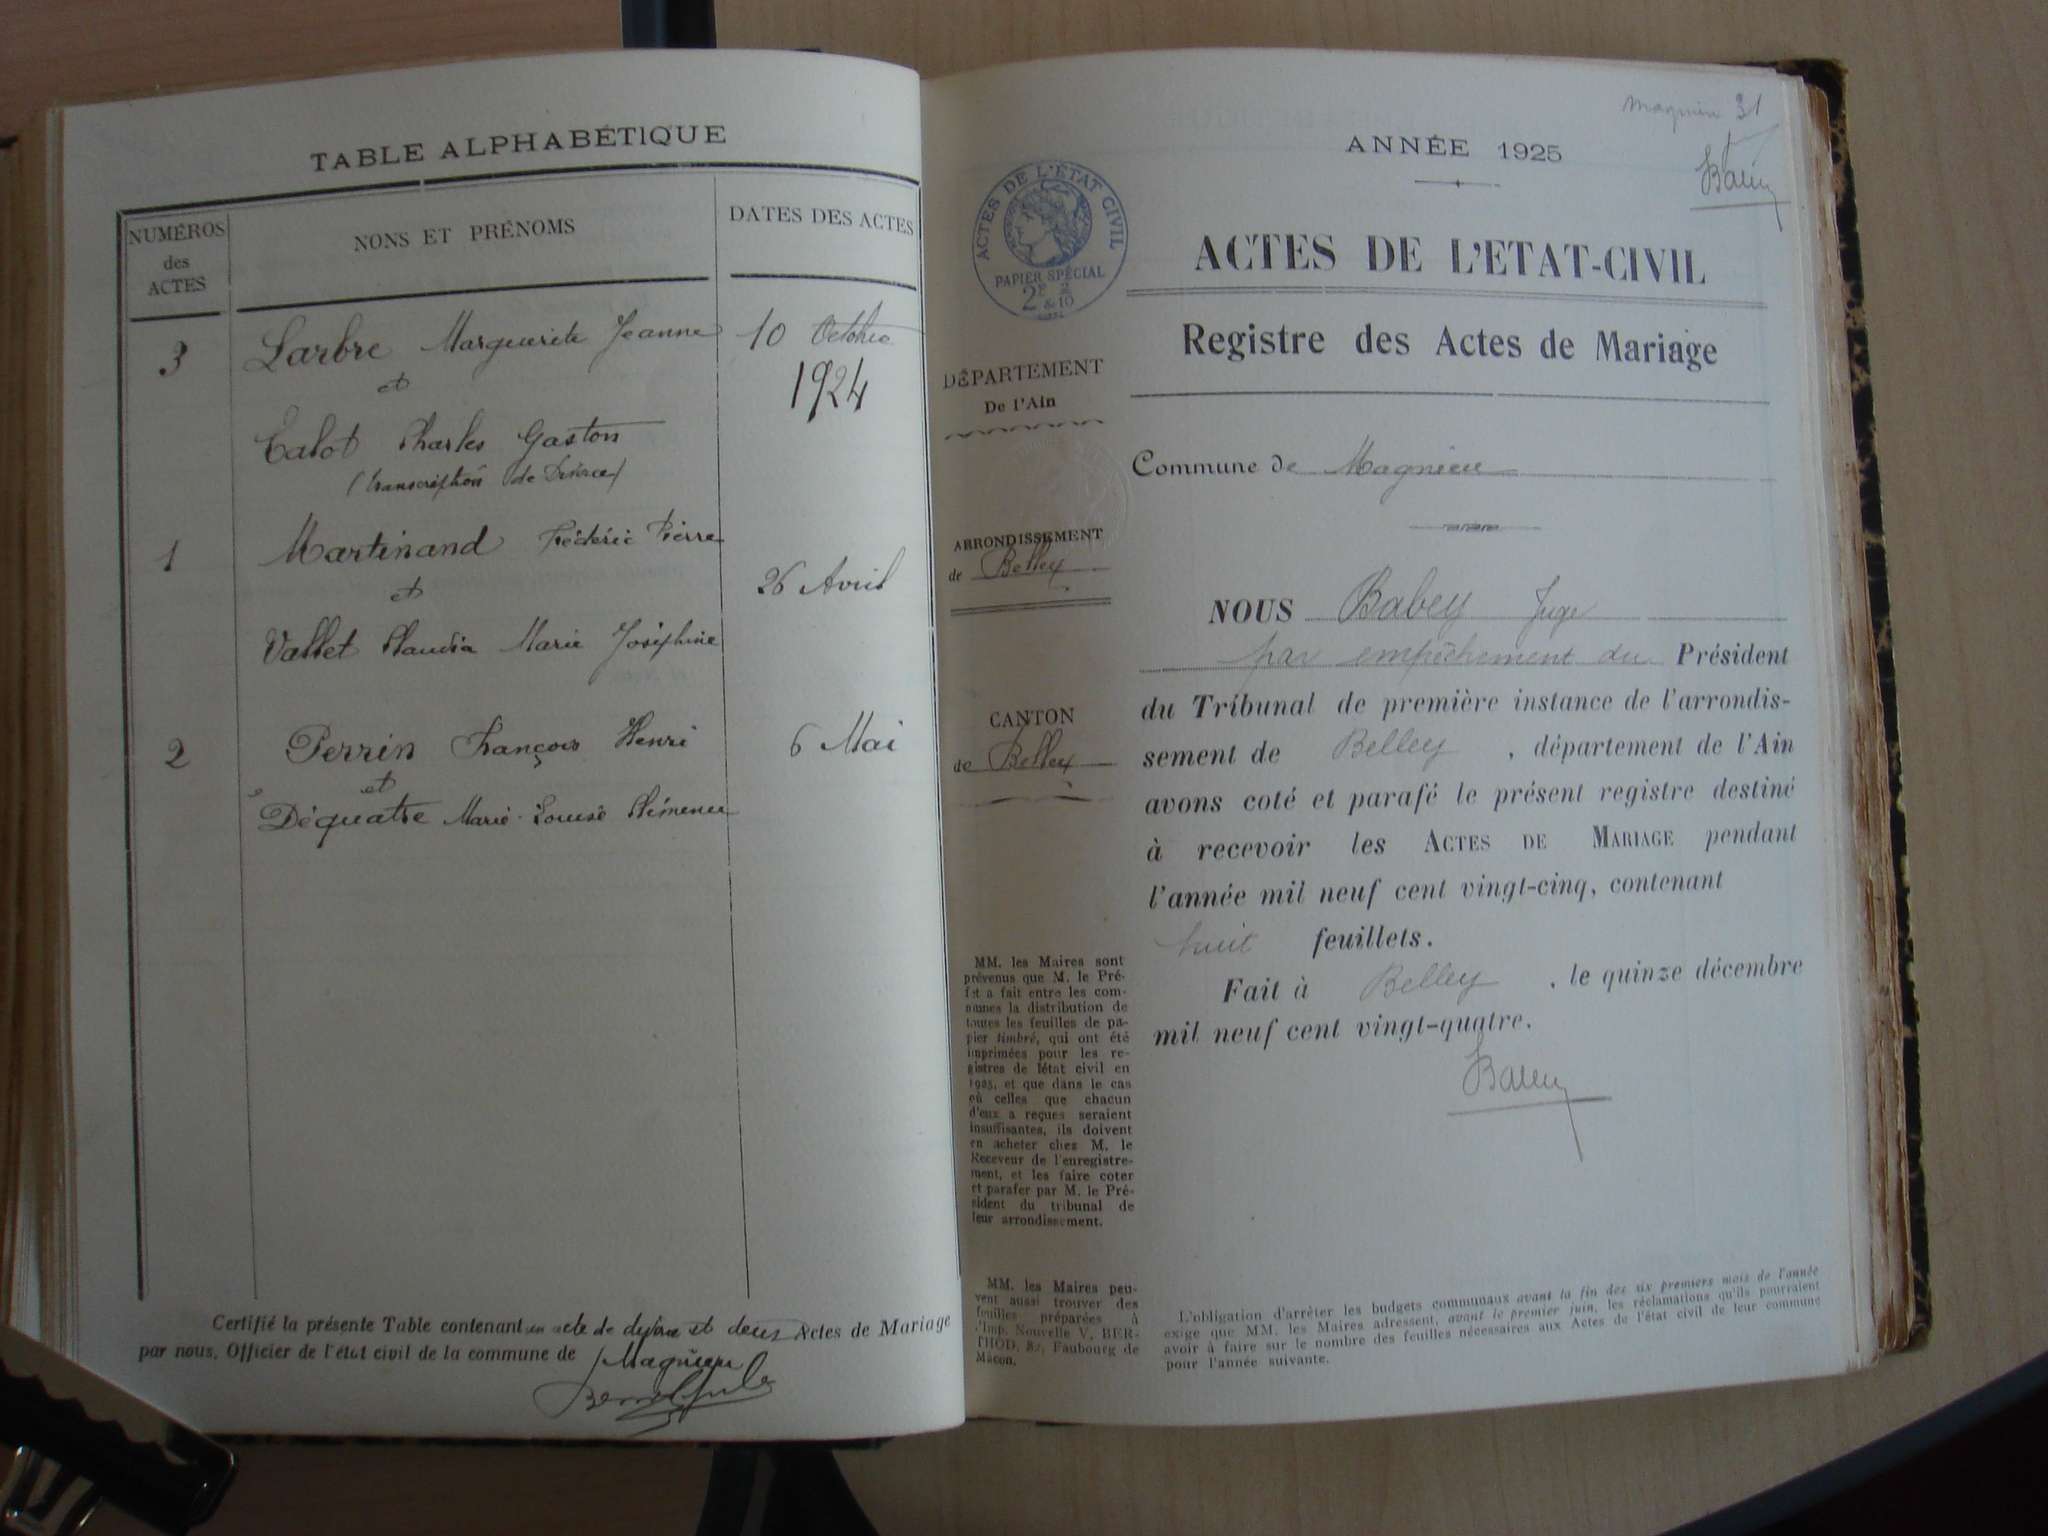 TABLE ALPHABÉTIQUE
NUMÉROS
des
ACTES
NONS ET PRÉNOMS
DATES DES ACTES
3 Larbre Marguerite Jeanne 10 Octobre
et 1924
Talot Charles Gaston
(transcription de Divorce)
1 Martinand Frédéric Pierre
et 26 Avril
Vallet Claudia Marie Joséphine
2 Perrin François Henri 6 Mai
et
Déquatre Marie-Louise Clémence
Certifié la présente Table contenant un acte de divorce et deux Actes de Mariage
par nous, Officier de l'état civil de la commune de Magnieu
Magnieu 31
ANNÉE 1925
Babey
ACTES DE L'ÉTAT CIVIL
PAPIER SPÉCIAL
2F 2
&10
ACTES DE L'ETAT-CIVIL
Registre des Actes de Mariage
DÉPARTEMENT
De l'Ain
Commune de Magnieu
ARRONDISSEMENT
de Belley
CANTON
de Belley
NOUS Babey Juge
par empêchement du Président
du Tribunal de première instance de l'arrondis-
sement de Belley, département de l'Ain
avons coté et parafé le présent registre destiné
à recevoir les ACTES DE MARIAGE pendant
l'année mil neuf cent vingt-cinq, contenant
huit feuillets.
Fait à Belley, le quinze décembre
mil neuf cent vingt-quatre.
Babey
MM. les Maires sont
prévenus que M. le Pré-
fet a fait entre les com-
munes la distribution de
toutes les feuilles de pa-
pier timbré, qui ont été
imprimées pour les re-
gistres de létat civil en
1925, et que dans le cas
où celles que chacun
d'eux a reçues seraient
insuffisantes, ils doivent
en acheter chez M. le
Receveur de l'enregistre-
ment, et les faire coter
et parafer par M. le Pré-
sident du tribunal de
leur arrondissement.
MM. les Maires peu-
vent aussi trouver des
feuilles préparées à
l'Imp. Nouvelle V. BER-
THOD, 82, Faubourg de
Mâcon.
L'obligation d'arrêter les budgets communaux avant la fin des six premiers mois de l'année
exige que MM. les Maires adressent, avant le premier juin, les réclamations qu'ils pourraient
avoir à faire sur le nombre des feuilles nécessaires aux Actes de l'état civil de leur commune
pour l'année suivante.